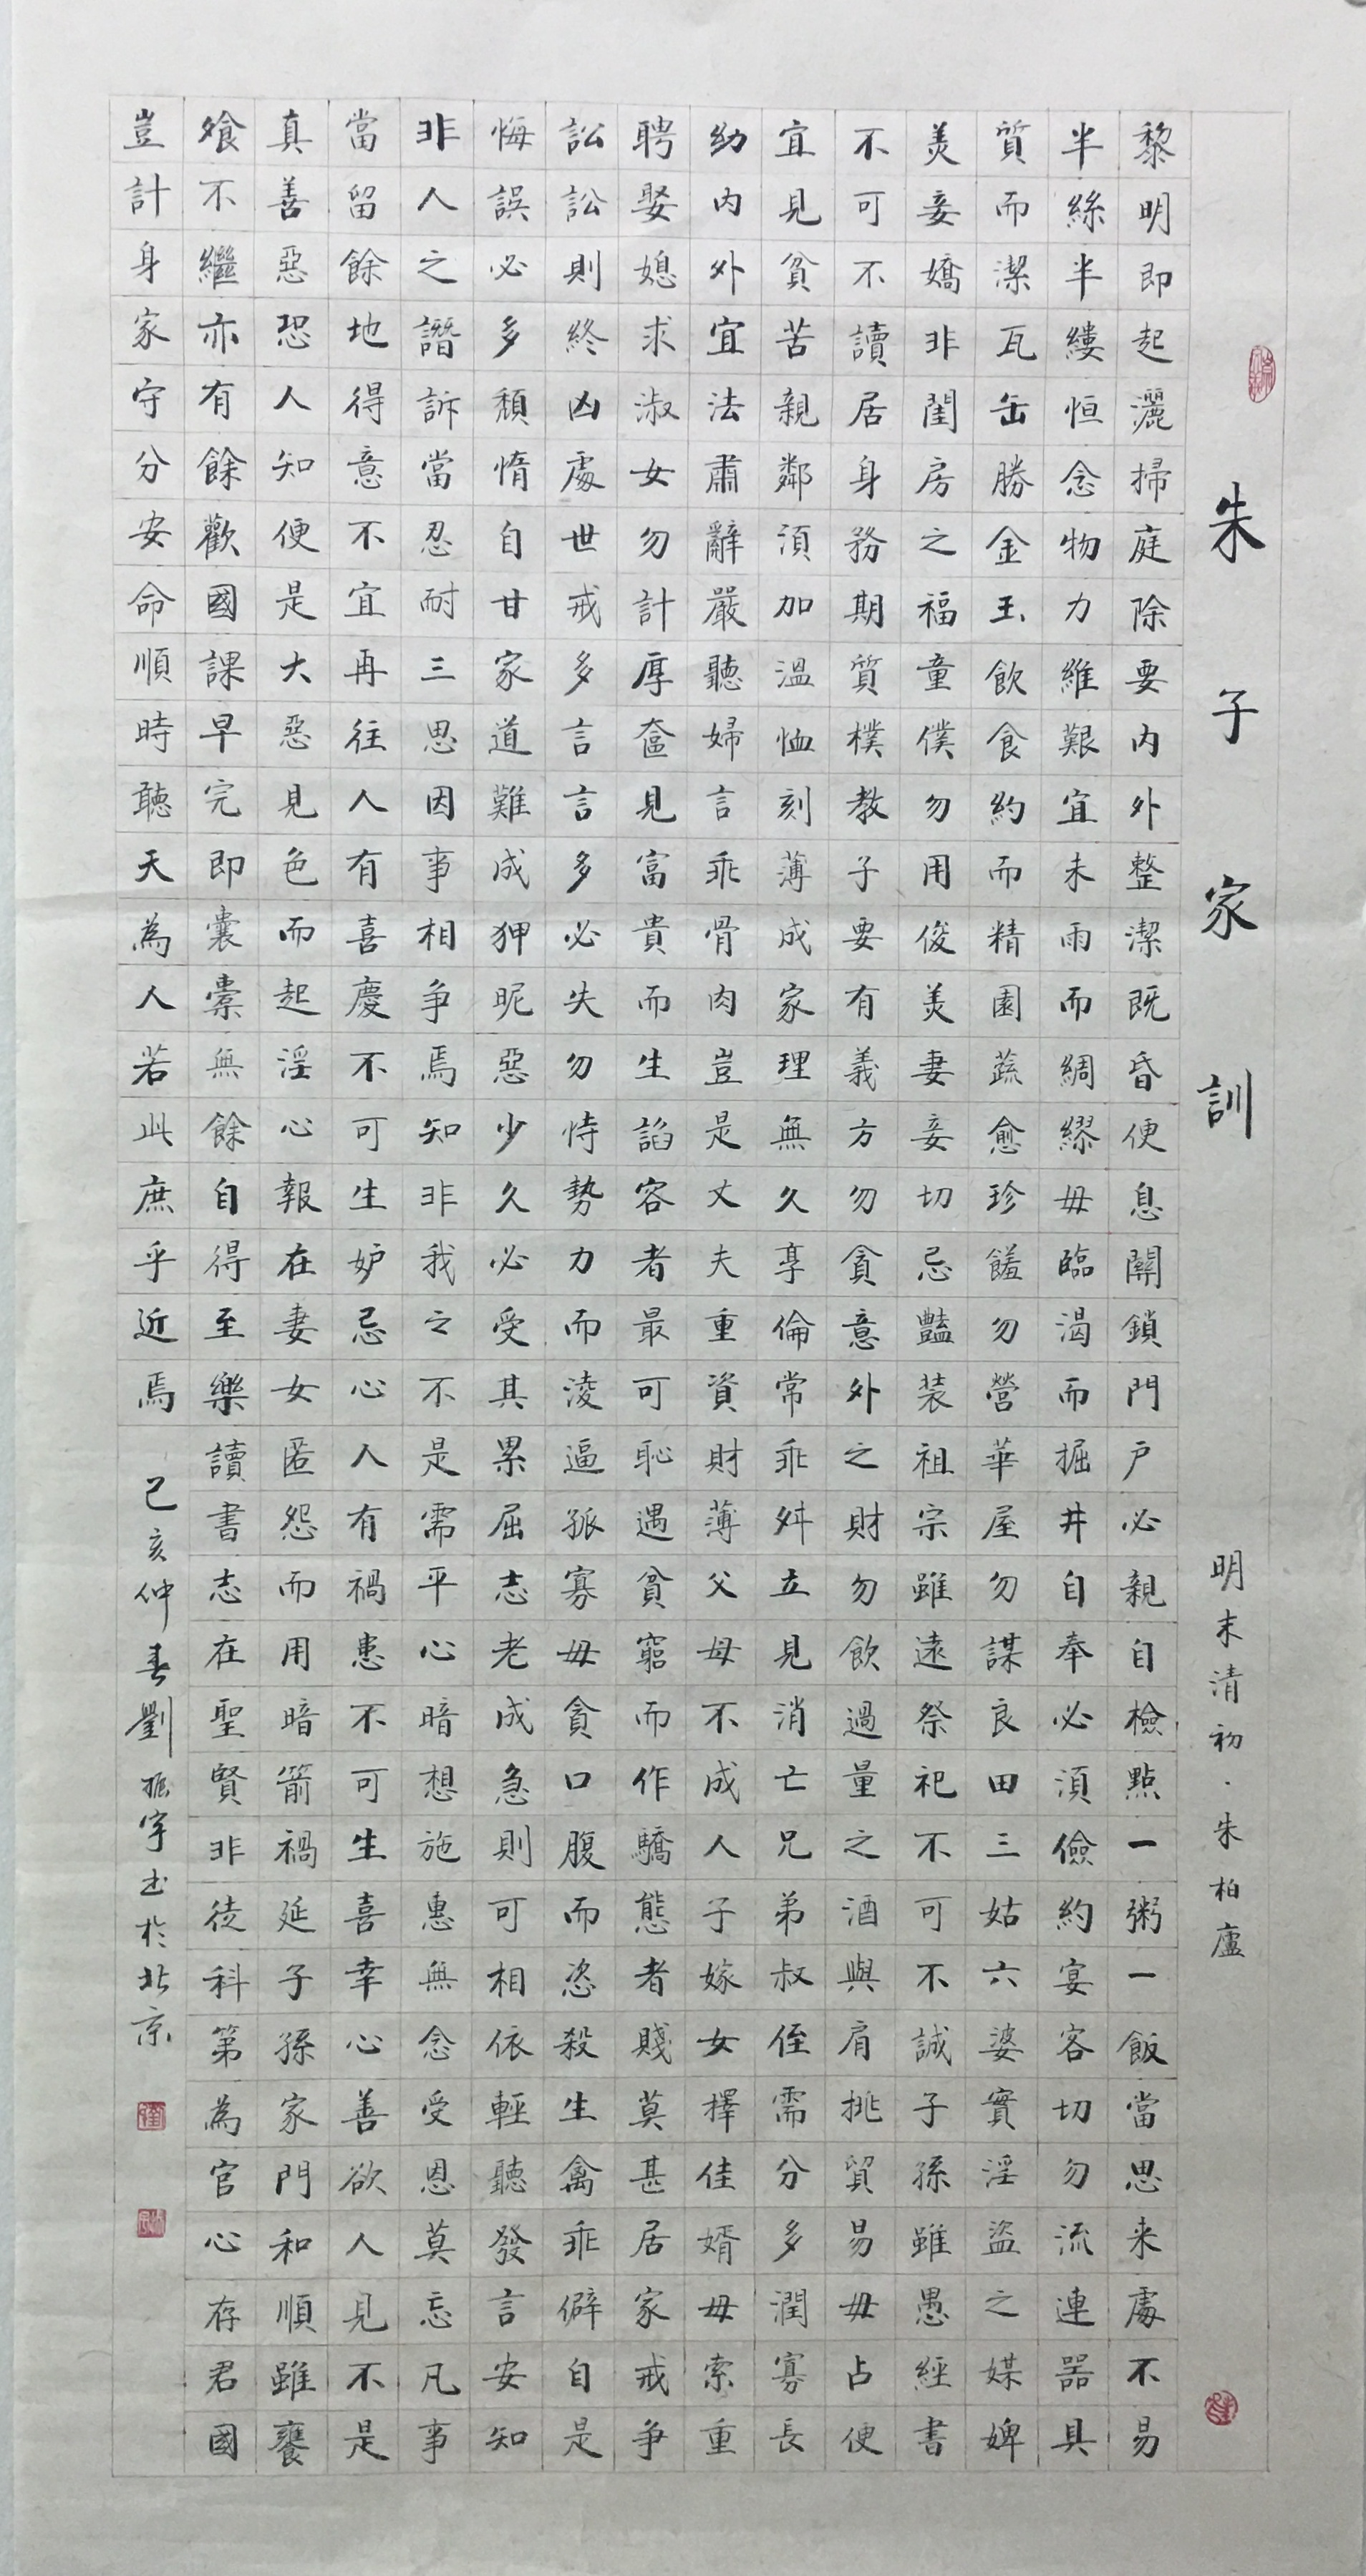 朱子家訓
明末清初·朱柏廬
黎明即起灑掃庭除要內外整潔既昏便息關鎖門戶必親自檢點一粥一飯當思来處不易
半絲半縷恒念物力維艱宜未雨而綢繆毋臨渴而掘井自奉必須儉約宴客切勿流連器具
質而潔瓦缶勝金玉飲食約而精園蔬愈珍饈勿營華屋勿謀良田三姑六婆實淫盜之媒婢
美妾嬌非閨房之福童僕勿用俊美妻妾切忌豔裝祖宗雖遠祭祀不可不誠子孫雖愚經書
不可不讀居身務期質樸教子要有義方勿貪意外之財勿飲過量之酒與肩挑貿易毋占便
宜見貧苦親鄰須加溫恤刻薄成家理無久享倫常乖舛立見消亡兄弟叔侄需分多潤寡長
幼內外宜法肅辭嚴聽婦言乖骨肉豈是丈夫重資財薄父母不成人子嫁女擇佳婿毋索重
聘娶媳求淑女勿計厚奩見富貴而生諂容者最可恥遇貧窮而作驕態者賤莫甚居家戒爭
訟訟則終凶處世戒多言言多必失勿恃勢力而淩逼孤寡毋貪口腹而恣殺生禽乖僻自是
悔誤必多頹惰自甘家道難成狎昵惡少久必受其累屈志老成急則可相依輕聽發言安知
非人之譖訴當忍耐三思因事相爭焉知非我之不是需平心暗想施惠無念受恩莫忘凡事
當留餘地得意不宜再往人有喜慶不可生妒忌心人有禍患不可生喜幸心善欲人見不是
真善惡恐人知便是大惡見色而起淫心報在妻女匿怨而用暗箭禍延子孫家門和順雖饔
飧不繼亦有餘歡國課早完即囊橐無餘自得至樂讀書志在聖賢非徒科第為官心存君國
豈計身家守分安命順時聽天為人若此庶乎近焉
己亥仲春劉振宇書於北京